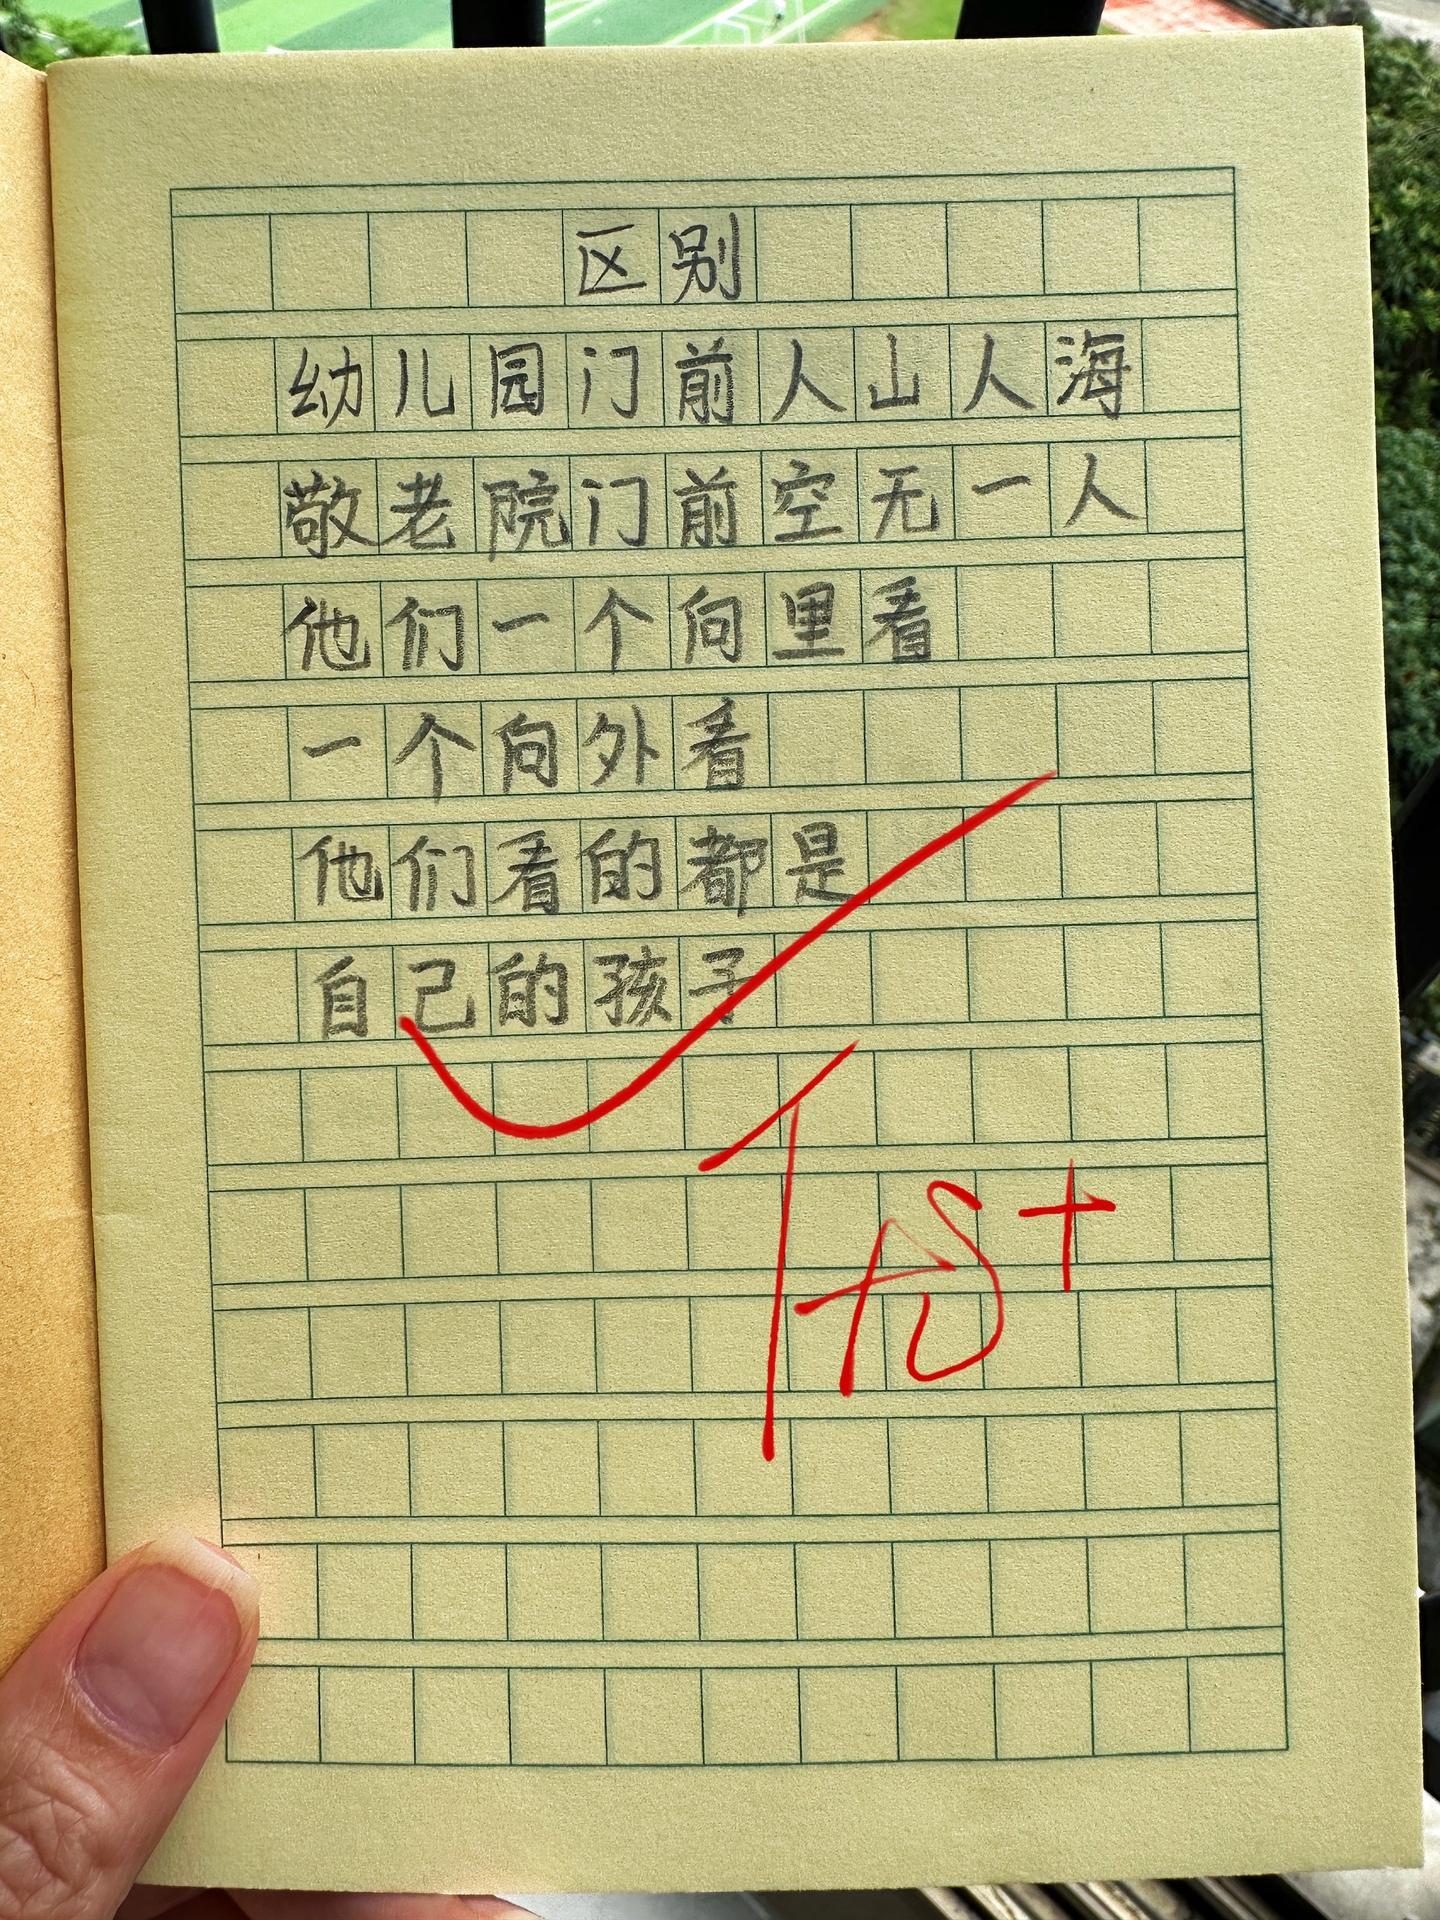 区别
幼儿园门前人山人海
敬老院门前空无一人
他们一个向里看
一个向外看
他们看的都是
自己的孩子
优+